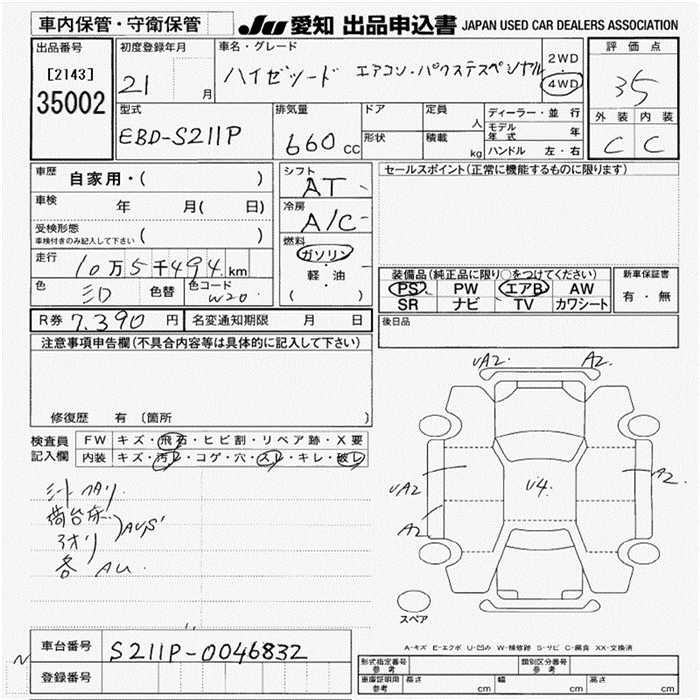 車内保管・守衛保管 JU 愛知 出品申込書 JAPAN USED CAR DEALERS ASSOCIATION
出品番号 初度登録年月 車名・グレード 2WD 評価点
[2143] 21 月 ハイゼット エアコン・パワステスペシャル 4WD 35
35002 型式 排気量 ドア 定員 人 ディーラー・並行 外装 内装
EBD-S211P 660 CC 形状 積載 kg モデル年式 年 C C
ハンドル 左・右
車歴 自家用・( ) シフト AT セールスポイント(正常に機能するものに限ります)
車検 年 月( 日) 冷房 A/C
受検形態 ( )
車検付きのみ記入して下さい
燃料 ガソリン
走行 10万5千494km 軽・油 装備品(純正品に限り○をつけてください) 新車保証書
色 色替 色コード W20 ( ) PS PW エアB AW 有・無
SR ナビ TV カワシート
R券 7,390 円 名変通知期限 月 日 後日品
注意事項申告欄(不具合内容等は具体的に記入して下さい)
修復歴 有 〔箇所 〕
UA2. A2.
検査員 FW キズ・飛石・ヒビ割・リペア跡・X要
記入欄 内装 キズ・汚レ・コゲ・穴・スレ・キレ・破レ
UA2 U4. A2.
A2
荷台床
アオリ
各 AU.
スペア
A-キズ E-エクボ U-凹み W-補修跡 S-サビ C-腐食 XX-交換済
車台番号 S211P-0046832
登録番号
型式指定番号 参考 類別区分番号 参考
車庫証明用 参考 長さ cm 幅 cm 高さ cm